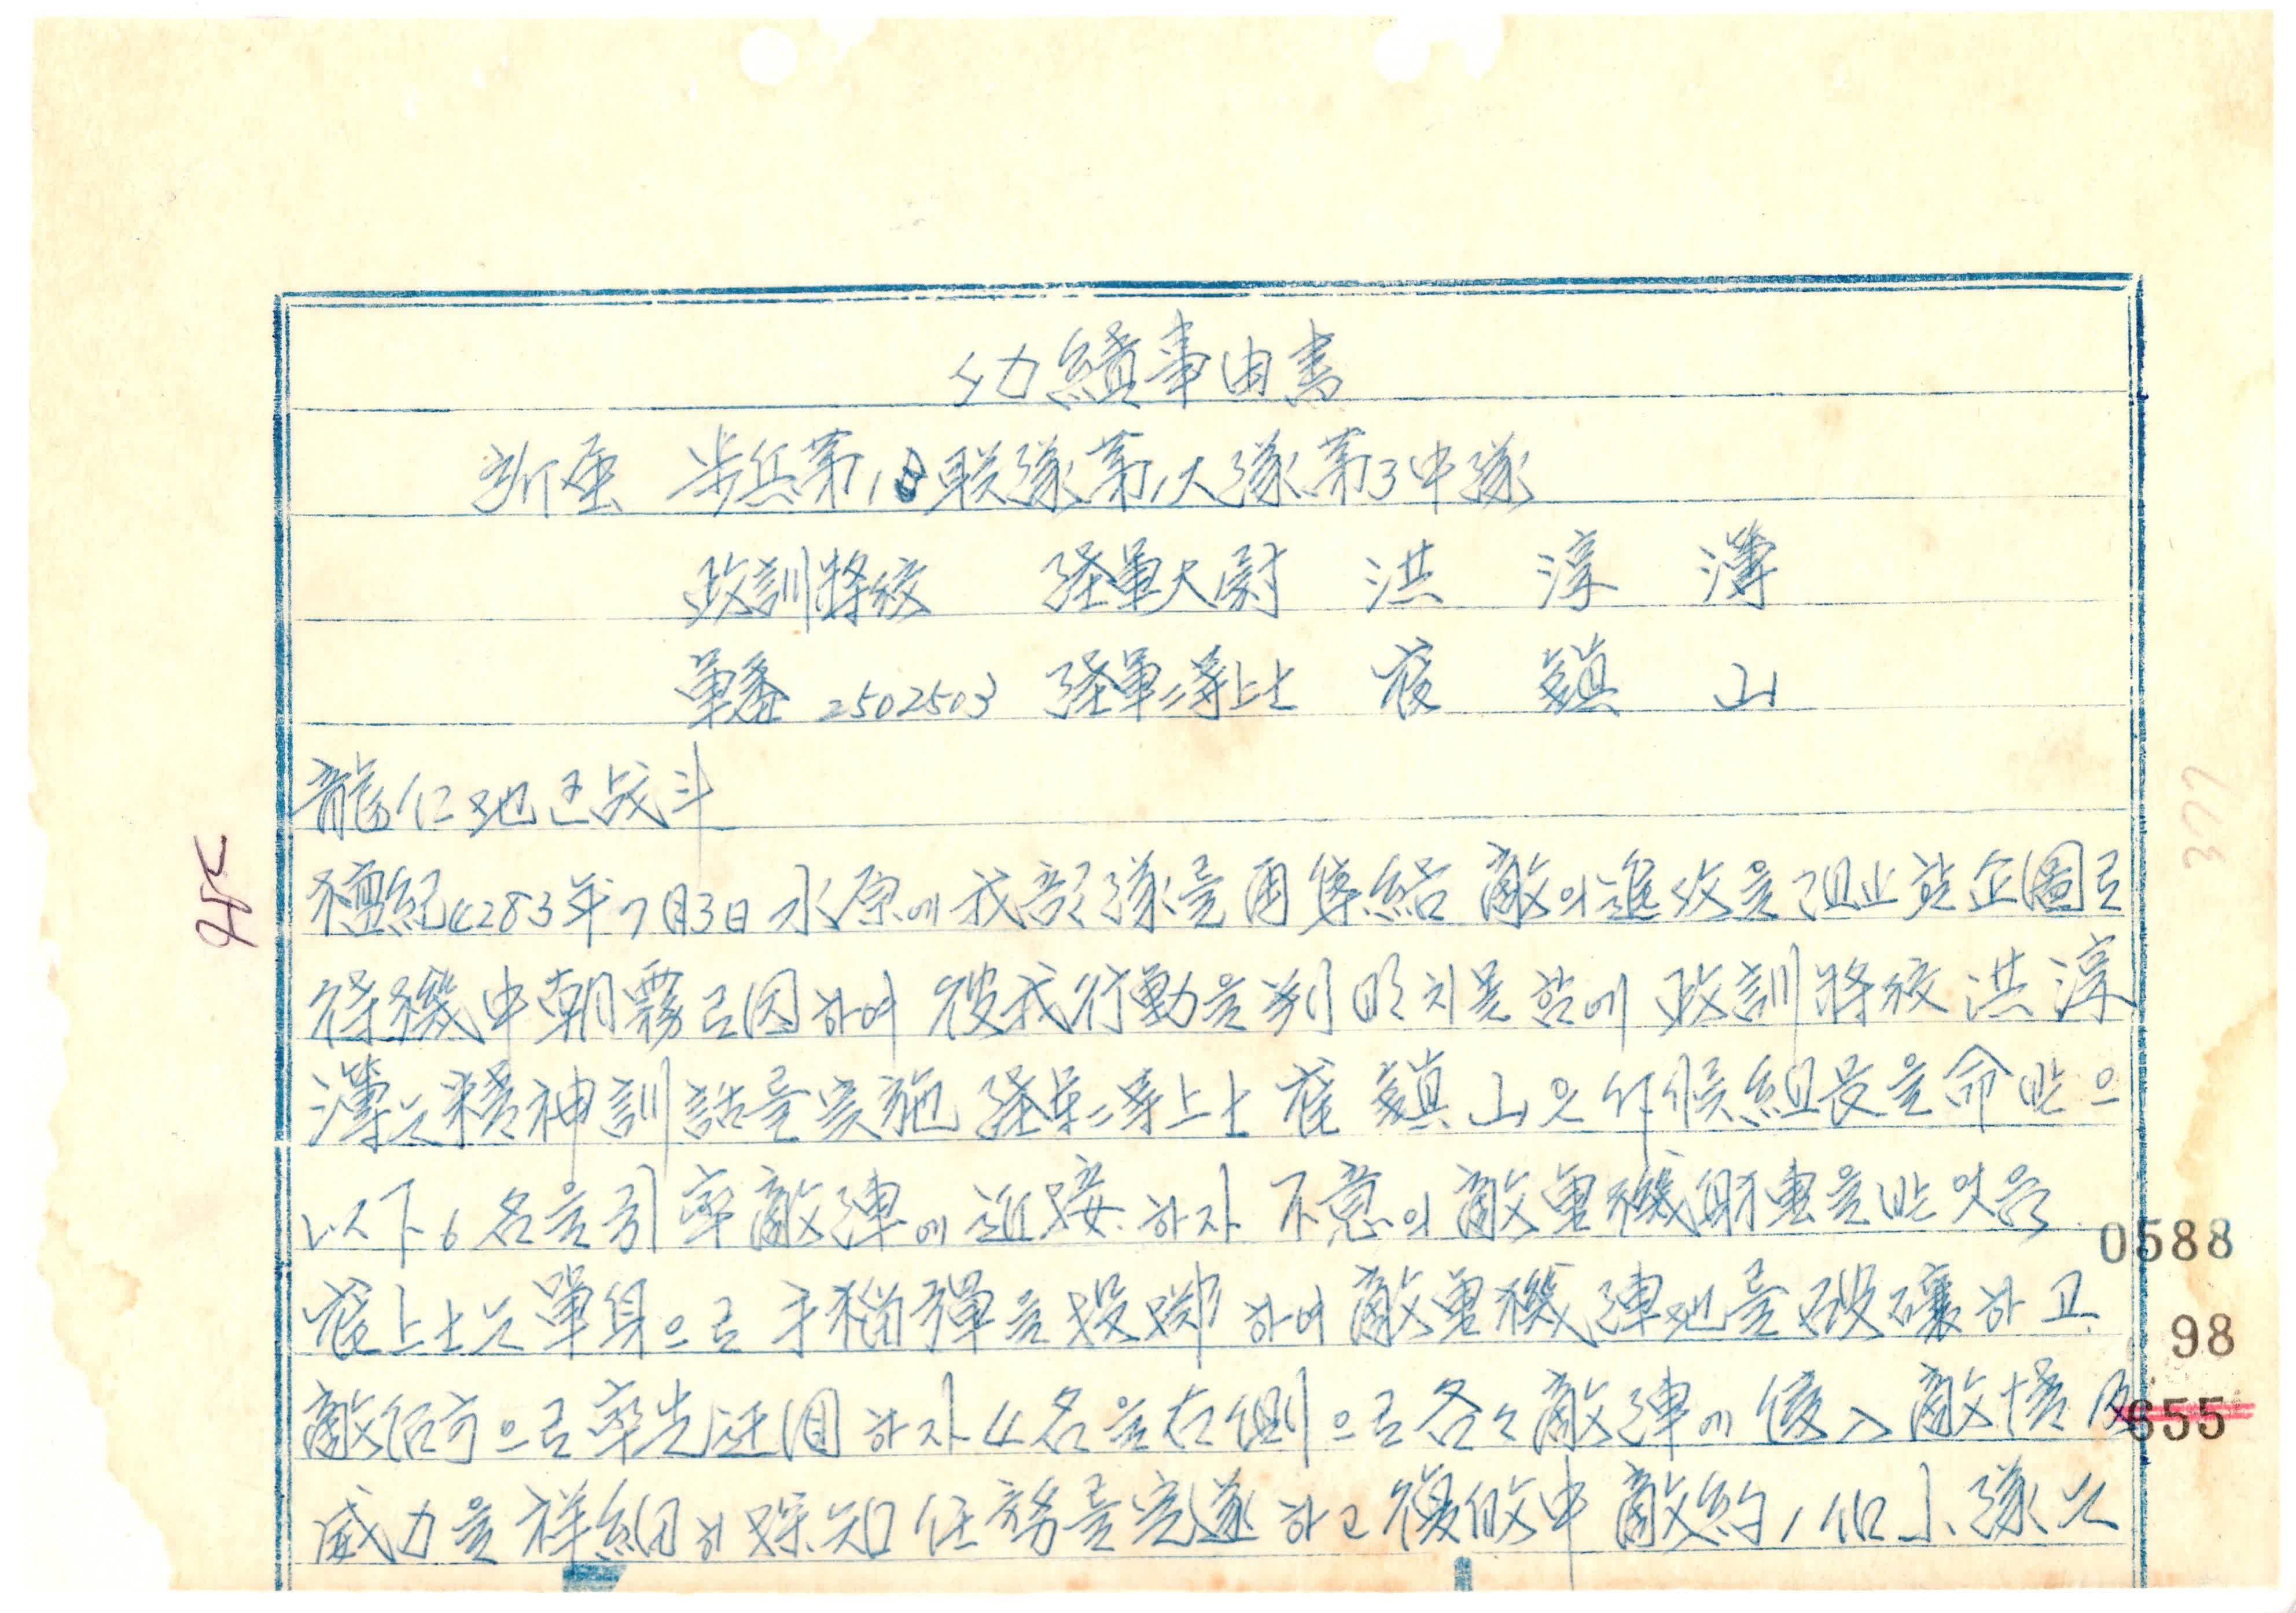 功績事由書
所屬 步兵第18联隊第1大隊第3中隊
政訓將校 陸軍大尉 洪 淳 溥
軍番 2502503 陸軍二等上士 崔 鎭 山
龍仁地区战斗
檀紀4283年7月3日 水原에 我部隊를 再集結 敵의 進攻을 阻止할 企圖로
待機中 朝霧로 因하여 彼我行動을 判明치 못함에 政訓將校 洪淳
溥는 精神訓話를 实施 陸軍二等上士 崔鎭山은 斥候組長을 命받으
以下6名을 引率 敵陣에 近接하자 不意의 敵重機射擊을 받었음
崔上士는 單身으로 手榴彈을 投擲하여 敵重機陣地를 破壞하고
敵 으로 率先 하자 4名을 右側으로 各々 敵陣에 侵入 敵情 及
威力을 祥細히 探知 任務를 完遂하고 復 中 敵約1個小隊는
0588
98
655
377